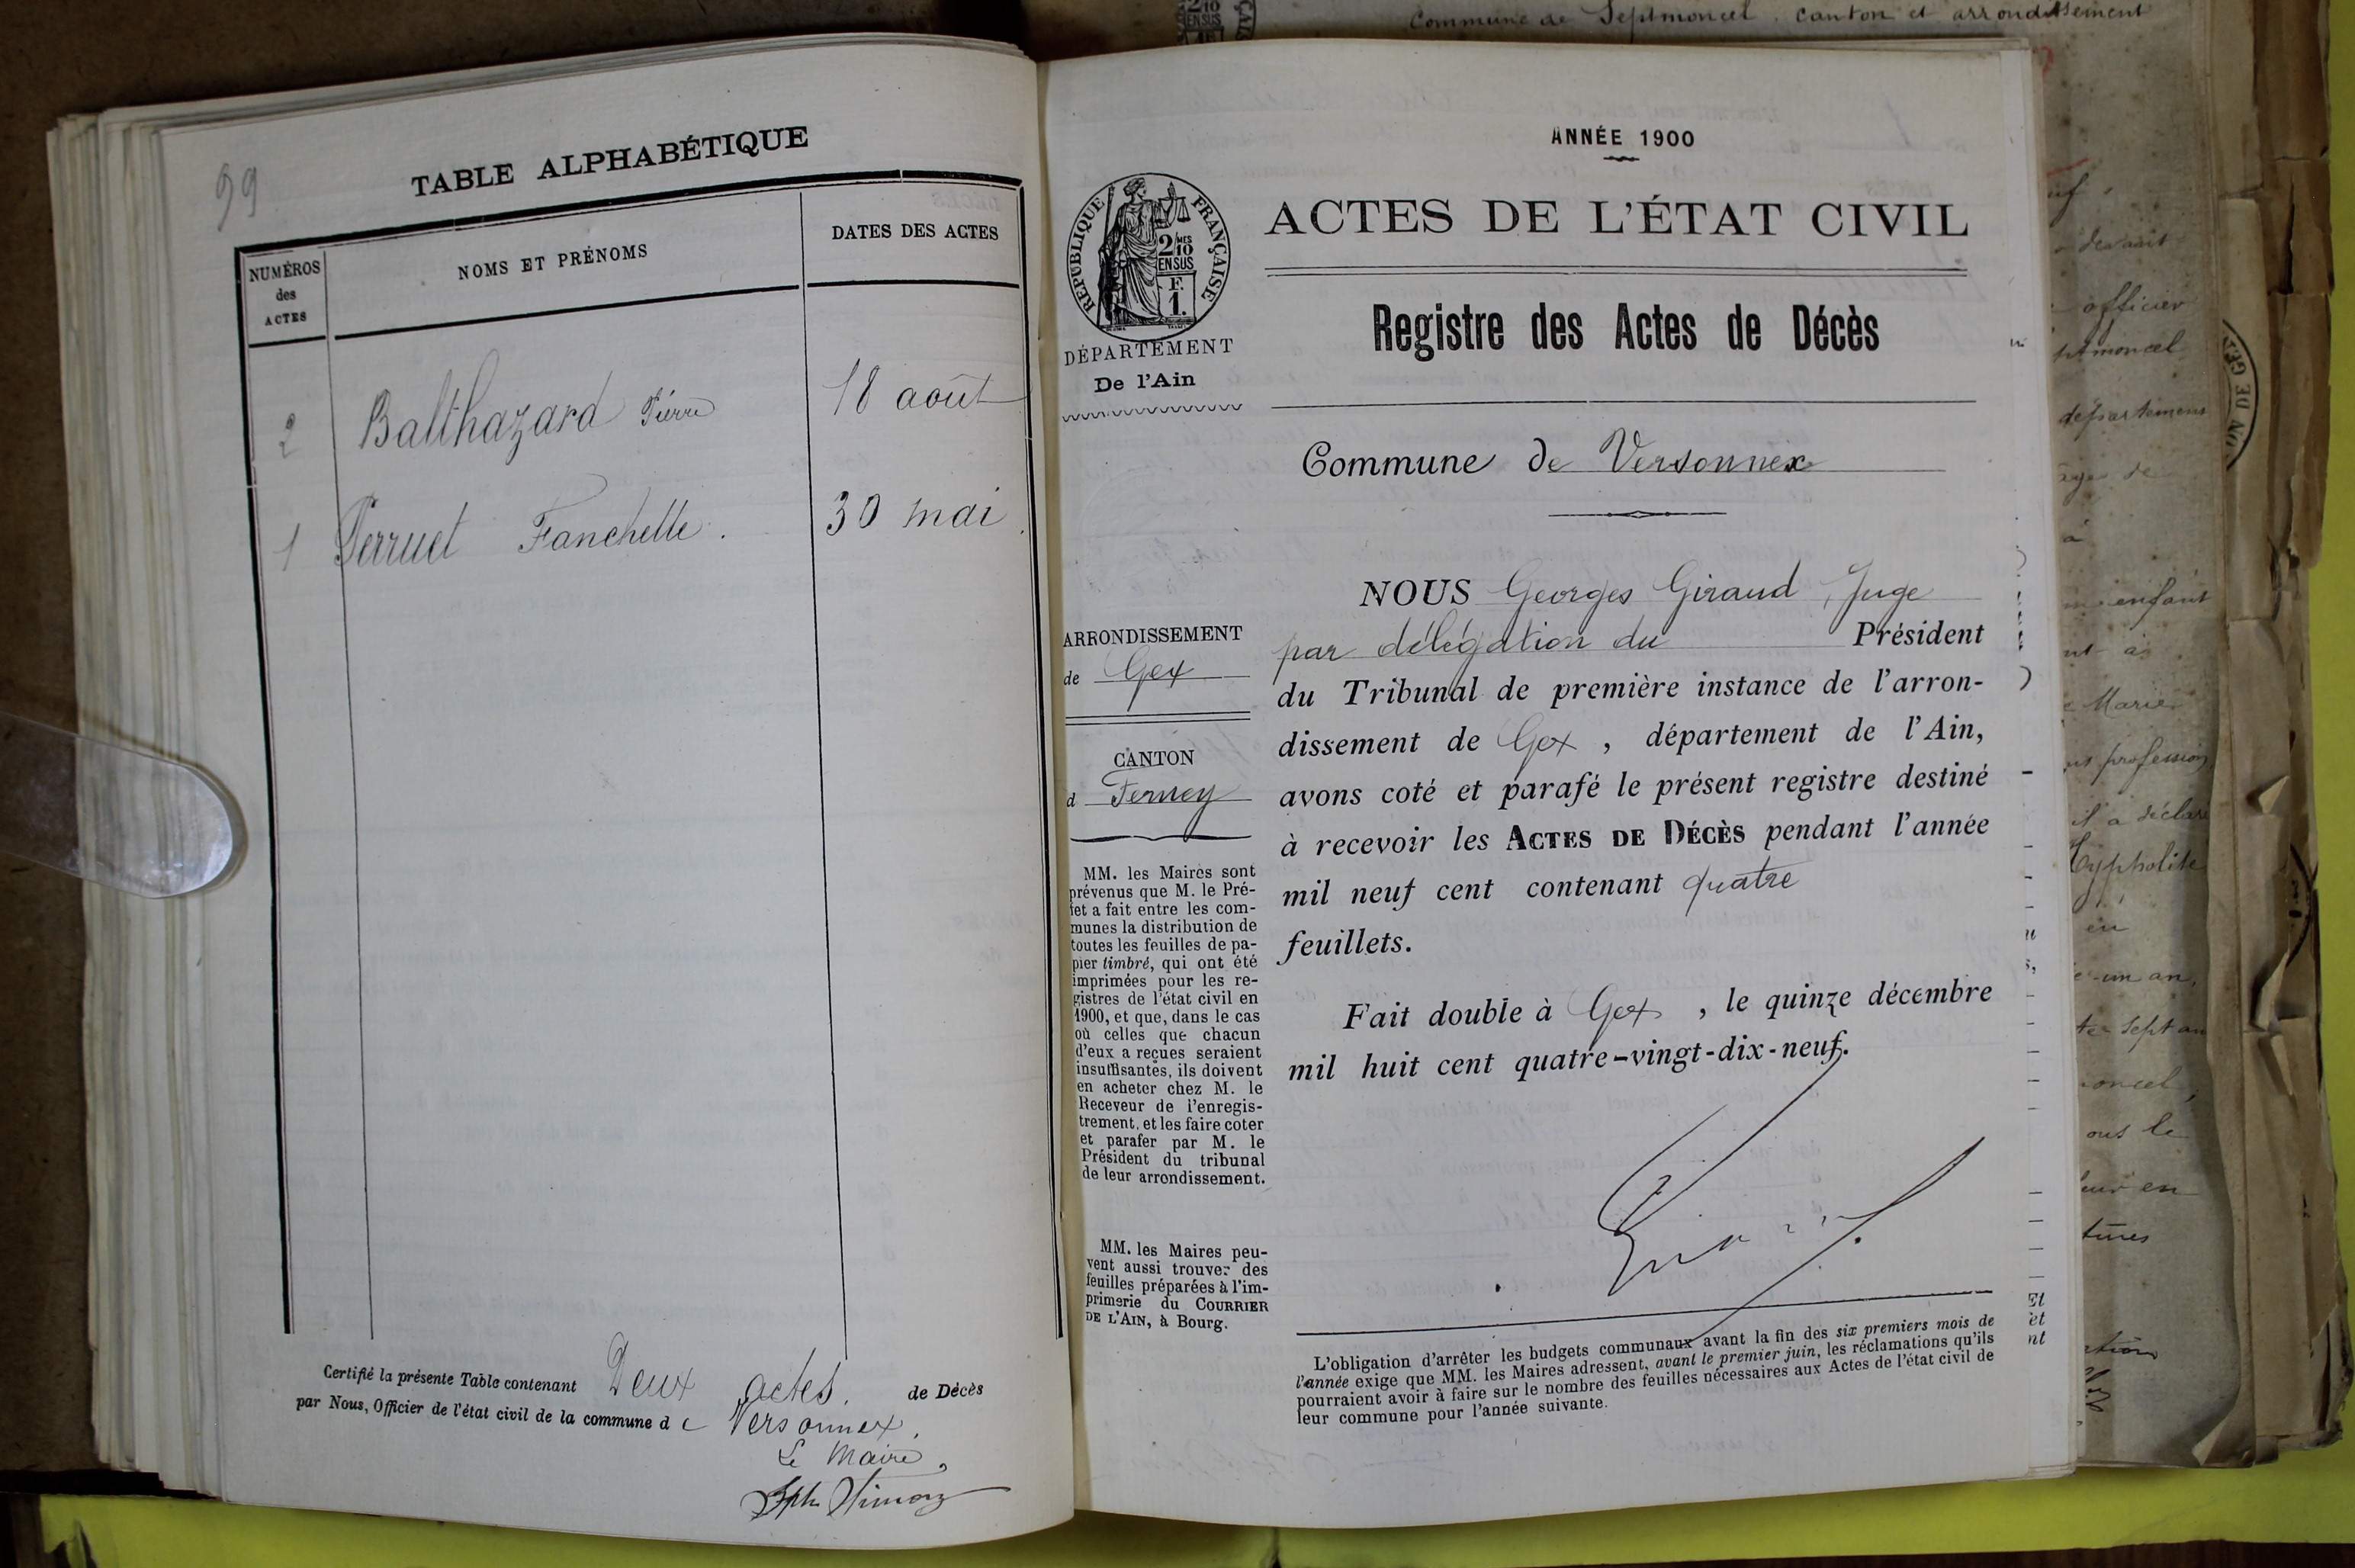 99
TABLE ALPHABÉTIQUE
NUMÉROS des ACTES
NOMS ET PRÉNOMS
DATES DES ACTES
2 Balthazard Pierre 18 août
1 Perruet Fanchette. 30 mai
Certifié la présente Table contenant Deux actes. de Décès
par Nous, Officier de l'état civil de la commune de Versonnex.
Le Maire,
ANNÉE 1900
RÉPUBLIQUE FRANÇAISE
2/10 MES
EN SUS
F.
1.
ACTES DE L'ÉTAT CIVIL
Registre des Actes de Décès
DÉPARTEMENT
De l'Ain
Commune de Versonnex
ARRONDISSEMENT
de Gex
CANTON
d Ferney
MM. les Maires sont
prévenus que M. le Pré-
fet a fait entre les com-
munes la distribution de
toutes les feuilles de pa-
pier timbré, qui ont été
imprimées pour les re-
gistres de l'état civil en
1900, et que, dans le cas
où celles que chacun
d'eux a reçues seraient
insuffisantes, ils doivent
en acheter chez M. le
Receveur de l'enregis-
trement, et les faire coter
et parafer par M. le
Président du tribunal
de leur arrondissement.
MM. les Maires peu-
vent aussi trouver des
feuilles préparées à l'im-
primerie du COURRIER
DE L'AIN, à Bourg.
NOUS Georges Giraud, Juge
par délégation du Président
du Tribunal de première instance de l'arron-
dissement de Gex, département de l'Ain,
avons coté et parafé le présent registre destiné
à recevoir les ACTES DE DÉCÈS pendant l'année
mil neuf cent contenant quatre
feuillets.
Fait double à Gex, le quinze décembre
mil huit cent quatre-vingt-dix-neuf.
L'obligation d'arrêter les budgets communaux avant la fin des six premiers mois de
l'année exige que MM. les Maires adressent, avant le premier juin, les réclamations qu'ils
pourraient avoir à faire sur le nombre des feuilles nécessaires aux Actes de l'état civil de
leur commune pour l'année suivante.
Commune de Septmoncel. canton et arrondissement
devant
officier
département
enfant
Marie
profession
il a déclaré
Hyppolite
en
un an,